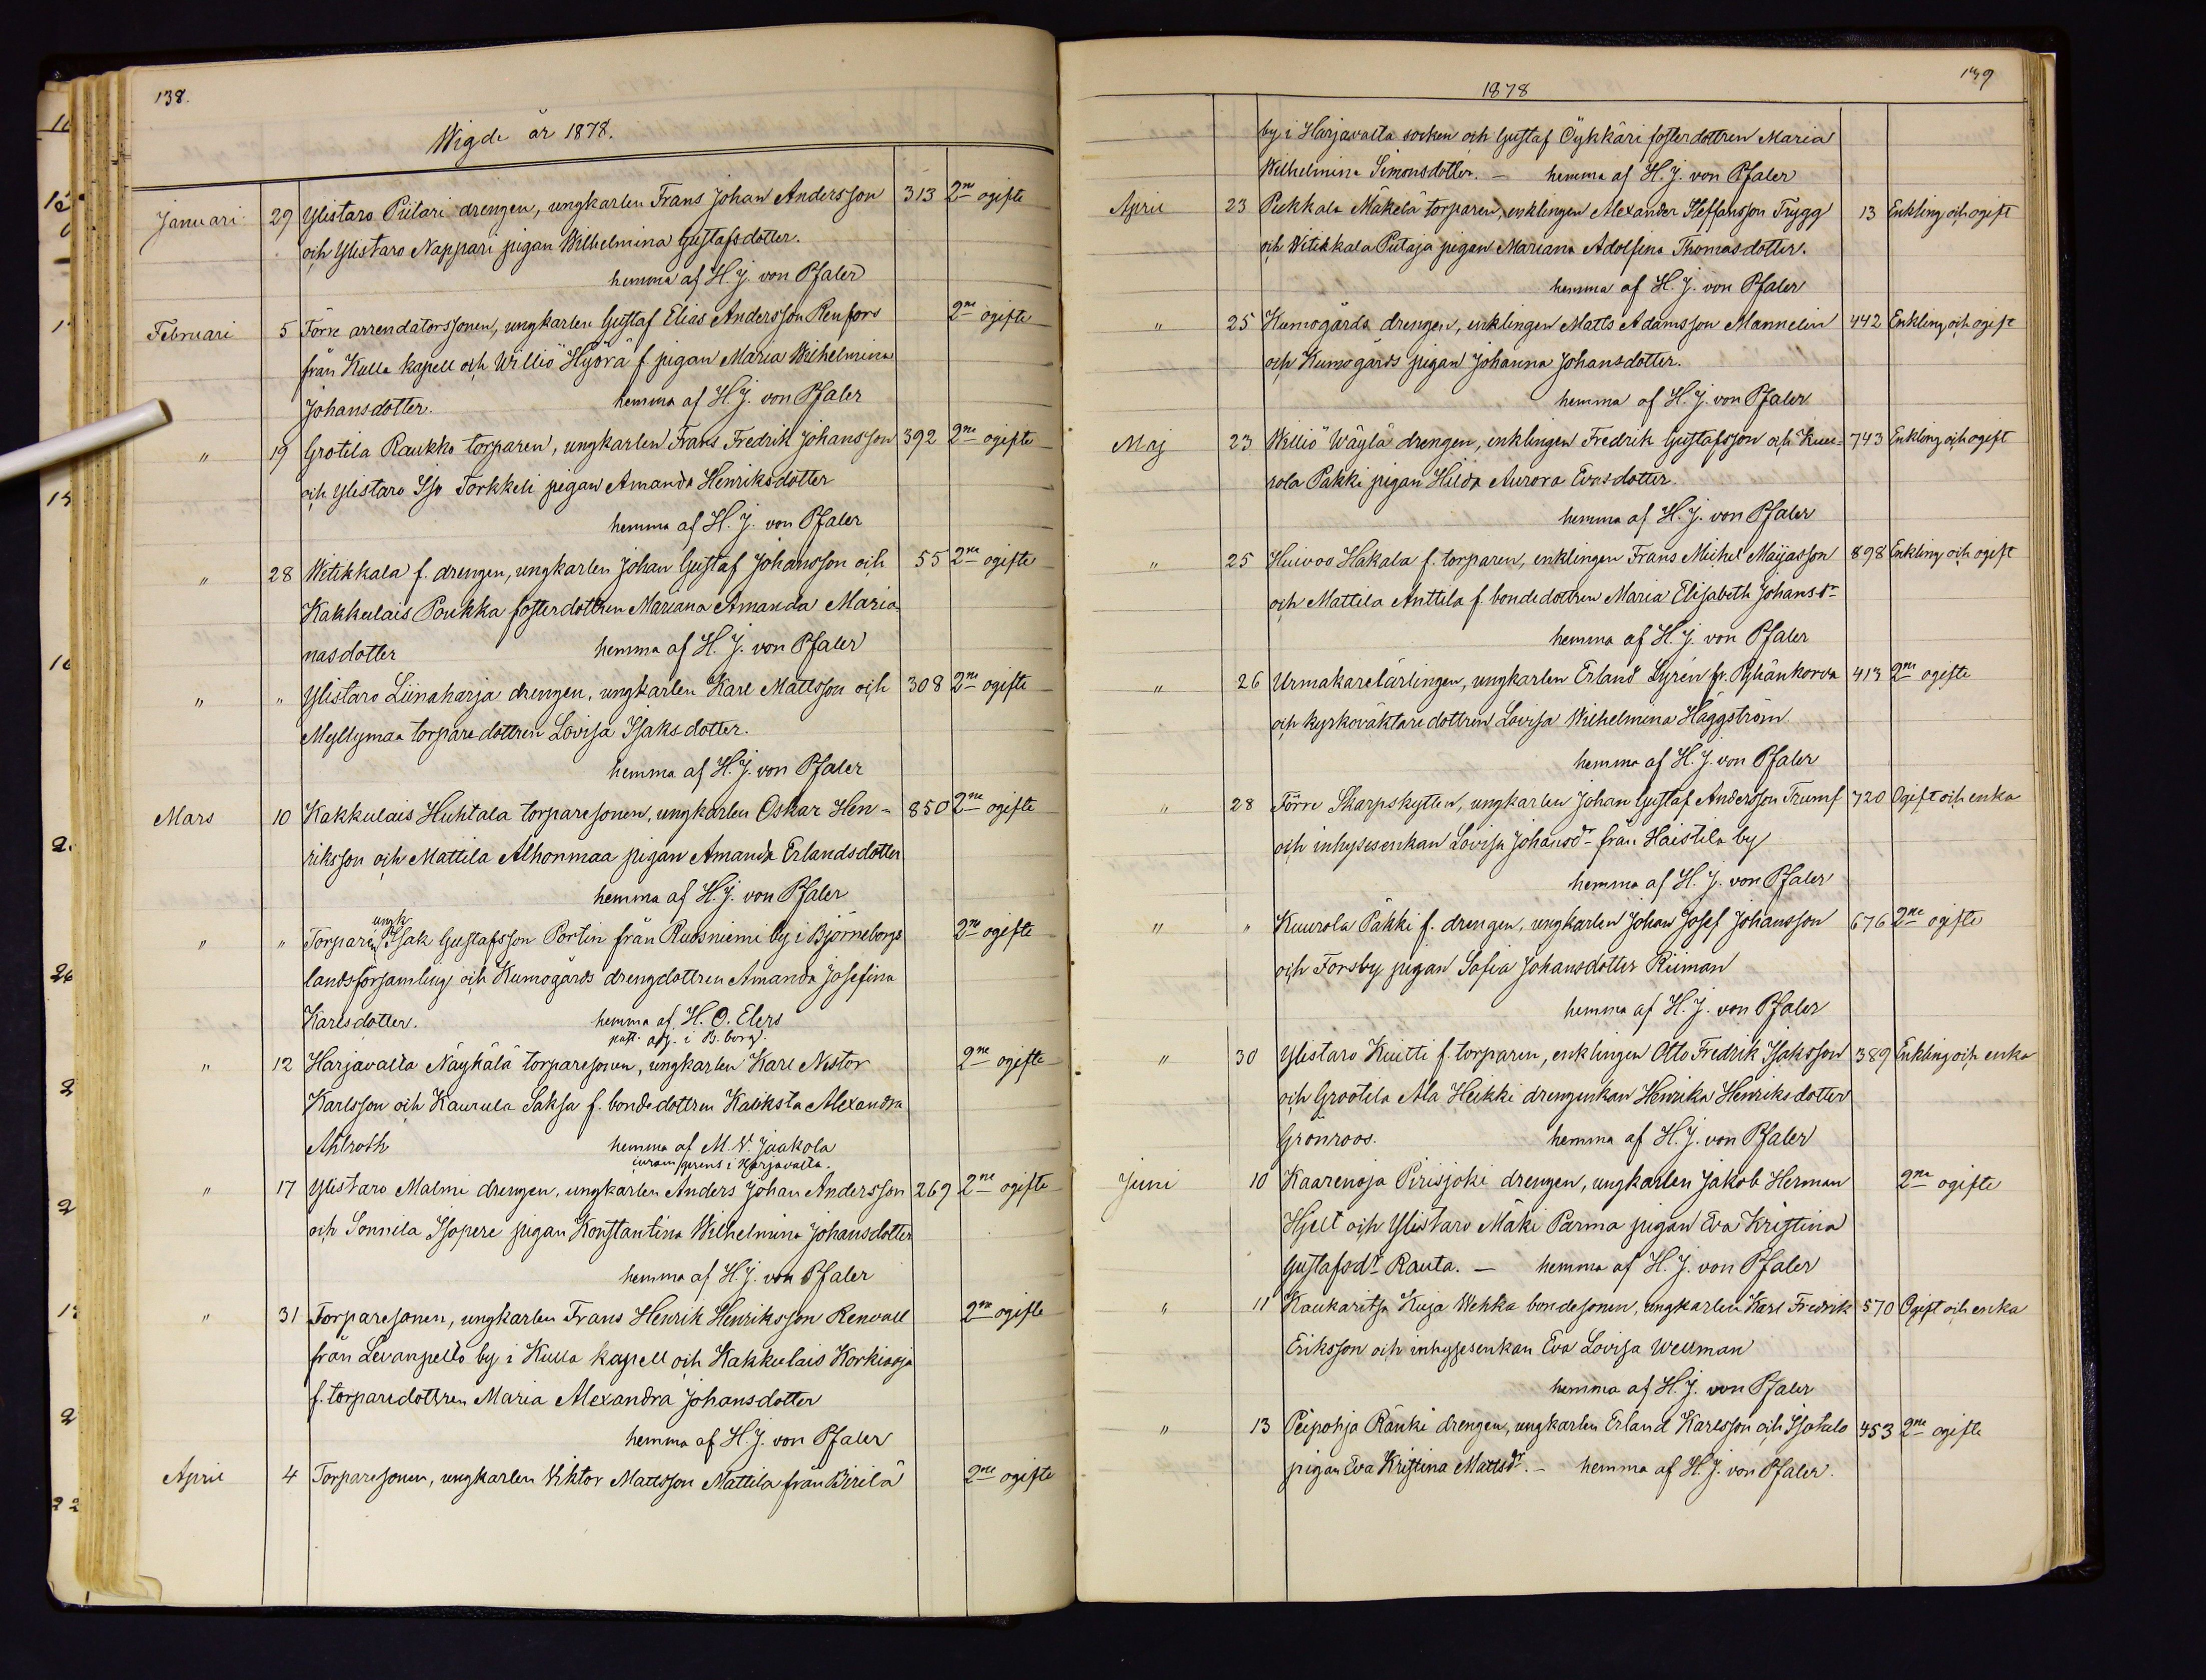 138.
Wigde år 1878.
Januari 29 Ylistaro Piitari drengen, ungkarlen Frans Johan Andersson 313 2ne ogifte
och Ylistaro Nappari pigan Wilhelmina Gustafsdotter.
hemma af H. J. von Pfaler
Februari 5 Förre arrendatorssonen, ungkarlen Gustaf Elias Andersson Renfors 2ne ogifte
från Kulla kapell och Williö Hyörä f. pigan Maria Wilhelmina
Johansdotter. hemma af H. J. von Pfaler
" 19 Grotila Raukko torparen, ungkarlen Frans Fredrik Johansson 392 2ne ogifte
och Ylistaro Iso Torkkeli pigan Amanda Henriksdotter
hemma af H. J. von Pfaler
" 28 Witikkala f. drengen, ungkarlen Johan Gustaf Johansson och 55 2ne ogifte
Kakkulais Poukka fosterdottren Mariana Amanda Maria
nasdotter hemma af H. J. von Pfaler
" " Ylistaro Liinaharja drengen, ungkarlen Karl Mattsson och 308 2ne ogifte
Myllymaa torparedottren Lovisa Isaksdotter.
hemma af H. J. von Pfaler
Mars 10 Kakkulais Huhtala torparesonen, ungkarlen Oskar Hen- 850 2ne ogifte
riksson och Mattila Alhonmaa pigan Amanda Erlandsdotter
hemma af H. J. von Pfaler
" " Torparen ungk Isak Gustafsson Portin från Ruosniemi by i Björneborgs 2ne ogifte
landsforsamling och Kumogårds drengdottren Amanda Josefina
Karlsdotter. hemma af H. O. Elers
past. adj. i B. borg.
" 12 Harjavalta Näyhälä torparesonen, ungkarlen Karl Nestor 2ne ogifte
Karlsson och Kaurula Saksa f. bondedottren Kaliksta Alexandra
Ahlroth hemma af M. W. Jaakola
curam gerens i Harjavalta.
" 17 Ylistaro Malmi drengen, ungkarlen Anders Johan Andersson 269 2ne ogifte
och Sonnila Isopere pigan Konstantina Wilhelmina Johansdotter
hemma af H. J. von Pfaler
" 31 Torparesonen, ungkarlen Frans Henrik Henriksson Renvall 2ne ogifte
från Levanpelto by i Kulla kapell och Kakkulais Korkiaoja
f. torparedottren Maria Alexandra Johansdotter
hemma af H. J. von Pfaler
April 4 Torparesonen, ungkarlen Viktor Mattsson Mattila från Pirilä 2ne ogifte
139
1878
by i Harjavalta socken och Gustaf Öykkäri fosterdottren Maria
Wilhelmina Simonsdotter. – hemma af H. J. von Pfaler
April 23 Pukkala Mäkelä torparen, enklingen Alexander Steffansson Trygg 13 Enkling och ogift
och Witikkala Putaja pigan Mariana Adolfina Thomasdotter.
hemma af H. J. von Pfaler
" 25 Kumogårds drengen, enklingen Matts Adamsson Mannelin 442 Enkling och ogift
och Kumogårds pigan Johanna Johansdotter.
hemma af H. J. von Pfaler
Maj 23 Williö Wäylä drengen, enklingen Fredrik Gustafsson och Kuu- 743 Enkling och ogift
rola Pakki pigan Hilda Aurora Evasdotter
hemma af H. J. von Pfaler
" 25 Huivoo Hakala f. torparen, enklingen Frans Michel Maijasson 898 Enkling och ogift
och Mattila Anttila f. bondedottren Maria Elisabeth Johansdr
hemma af H. J. von Pfaler
" 26 Urmakarelärlingen, ungkarlen Erland Syrén fr. Pyhänkorva 413 2ne ogifte
och kyrkoväktaredottren Lovisa Wilhelmina Häggström
hemma af H. J. von Pfaler
" 28 Förre Skarpskytten, ungkarlen Johan Gustaf Andersson Trumf 720 Ogift och enka
och inhysesenkan Lovisa Johansdr från Haistila by
hemma af H. J. von Pfaler
" " Kuurola Päkki f. drengen, ungkarlen Johan Josef Johansson 676 2ne ogifte
och Forsby pigan Sofia Johansdotter Riiman
hemma af H. J. von Pfaler
" 30 Ylistaro Kuitti f. torparen, enklingen Otto Fredrik Isaksson 389 Enkling och enka
och Grootila Ala Heikki drengenkan Henrika Henriksdotter
Grönroos. hemma af H. J. von Pfaler
Juni 10 Kaarenoja Pirisjoki drengen, ungkarlen Jakob Herman 2ne ogifte
Hjelt och Ylistaro Mäki Parma pigan Eva Kristina
Gustafsdr Rauta. – hemma af H. J. von Pfaler
" 11 Kaukaritsa Kuja Wehka bondesonen, ungkarlen Karl Fredrik 570 Ogift och enka
Eriksson och inhysesenkan Eva Lovisa Wellman
hemma af H. J. von Pfaler
" 13 Peipohja Ränki drengen, ungkarlen Erland Karlsson och Isotalo 453 2ne ogifte
pigan Eva Kristina Mattsdr. – hemma af H. J. von Pfaler.